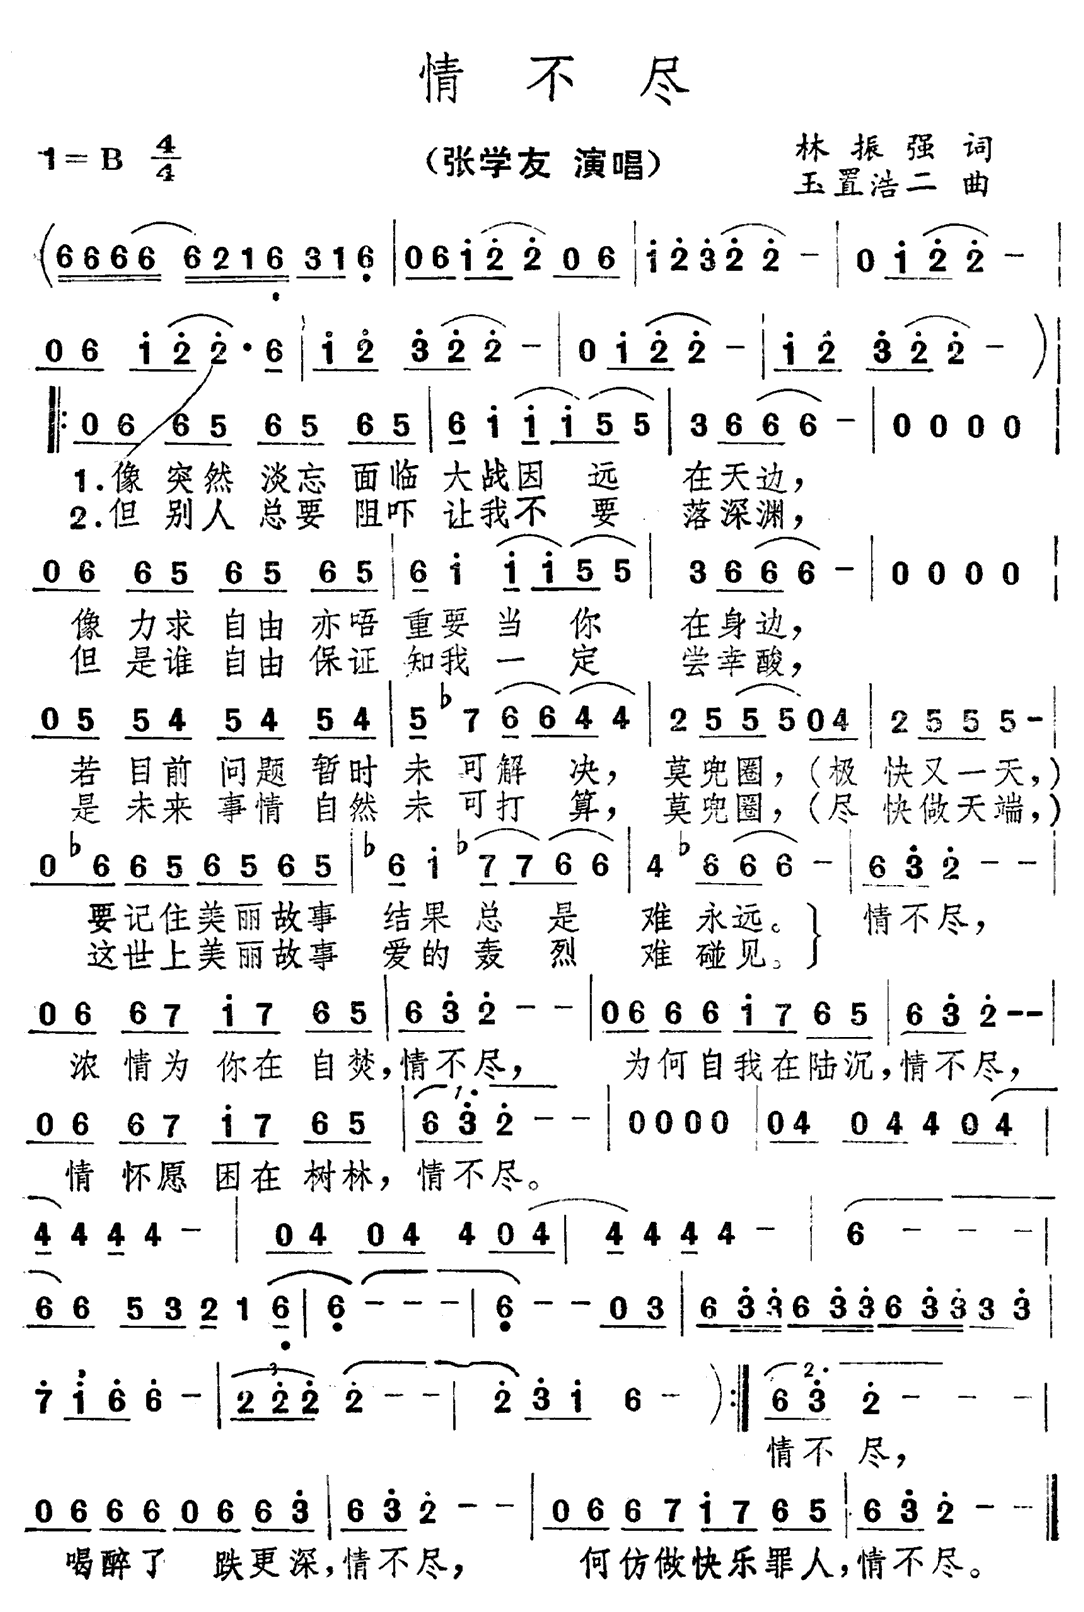 情不尽
1=B 4/4
(张学友 演唱)
林振强 词
玉置浩二 曲
(6666 6216 316 | 06i̇2̇ 2̇ 06 | i̇2̇3̇2̇ 2̇ - | 0 i̇2̇ 2̇ - |
06 i̇2̇ 2̇·6 | i̇2̇ 3̇2̇ 2̇ - | 0 i̇2̇ 2̇ - | i̇2̇ 3̇2̇ 2̇ - )|
‖: 06 65 65 65 | 6 i̇ i̇ i̇55 | 3666 - | 0000 |
1.像突然淡忘面临大战因远在天边,
2.但别人总要阻吓让我不要落深渊,
06 65 65 65 | 6 i̇ i̇ i̇55 | 3666 - | 0000 |
像力求自由亦唔重要当你在身边,
但是谁自由保证知我一定尝幸酸,
05 54 54 54 | 5 ♭7 6 644 | 255504 | 2555- |
若目前问题暂时未可解决,莫兜圈,(极快又一天,)
是未来事情自然未可打算,莫兜圈,(尽快做天端,)
0♭6 65 65 65 | ♭6 i̇ ♭7 766 | 4 ♭666 - | 63̇ 2̇ - - |
要记住美丽故事结果总是难永远。} 情不尽,
这世上美丽故事爱的轰烈难碰见。}
06 67 i̇7 65 | 63̇ 2̇ - - | 06 66 i̇7 65 | 63̇ 2̇ - - |
浓情为你在自焚,情不尽,为何自我在陆沉,情不尽,
06 67 i̇7 65 | 1. 63̇ 2̇ - - | 0000 | 04 04 4 04 |
情怀愿困在树林,情不尽。
4444 - | 04 04 4 04 | 4444 - | 6 - - - |
66 53 2 1 6 | 6 - - - | 6 - - 03 | 63̇3̇ 63̇3̇ 63̇3̇ 3̇3̇ |
7 i̇6 6 - | 3 22̇2̇ 2̇ - - | 2̇ 3̇i̇ 6 - ) :‖ 2. 63̇ 2̇ - - |
情不尽,
06 66 06 63̇ | 63̇ 2̇ - - | 06 67 i̇7 65 | 63̇ 2̇ - - ‖
喝醉了跌更深,情不尽,何仿做快乐罪人,情不尽。